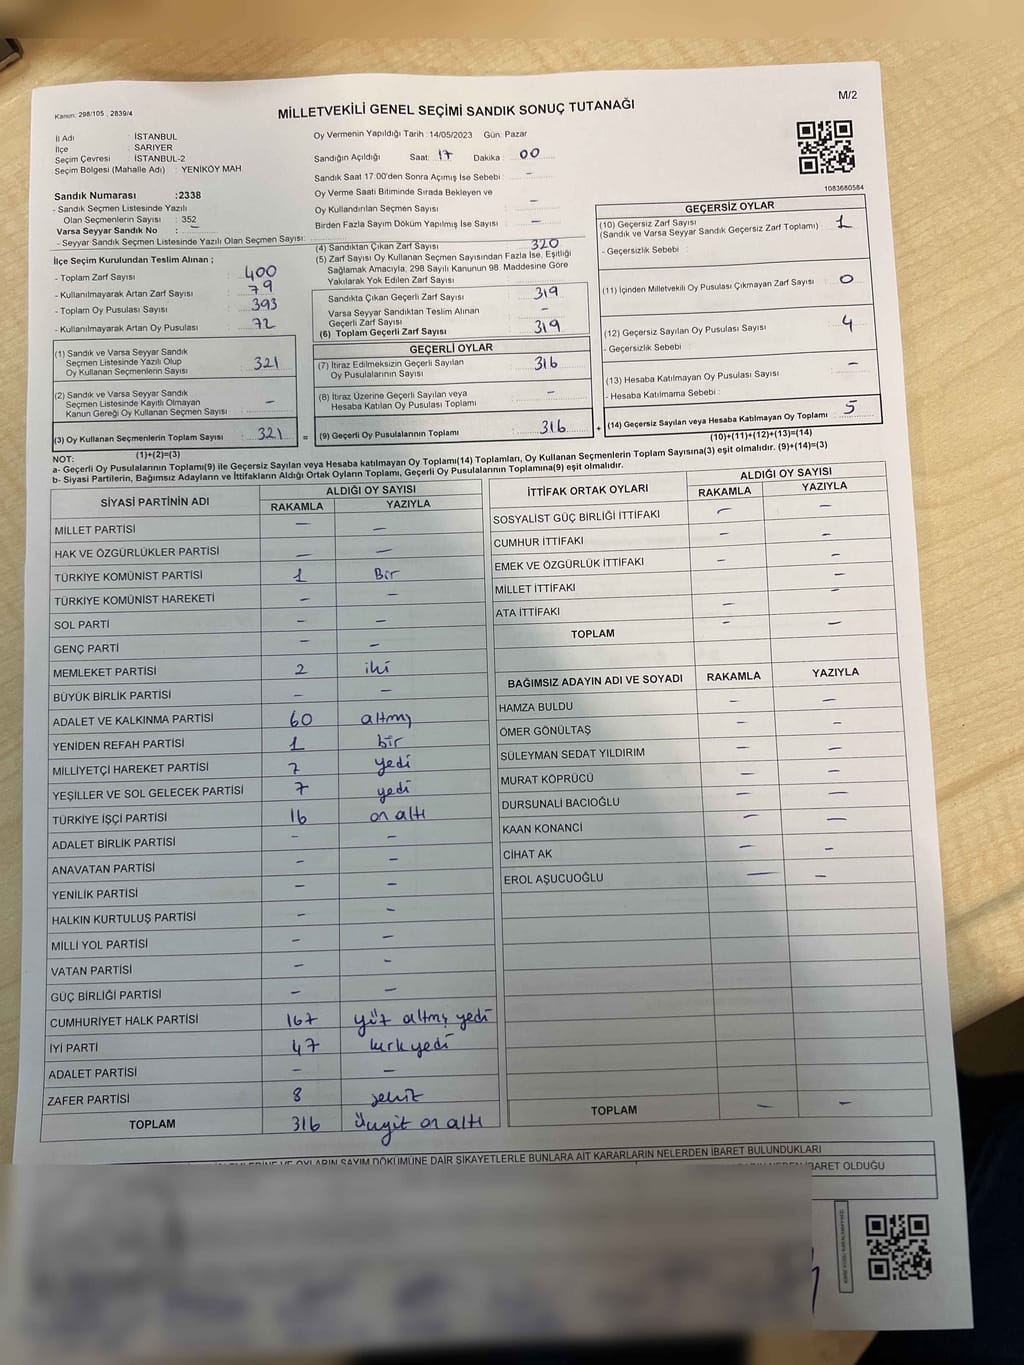 Kanun: 298/105 , 2839/4
MİLLETVEKİLİ GENEL SEÇİMİ SANDIK SONUÇ TUTANAĞI
M/2
İl Adı : İSTANBUL
İlçe : SARIYER
Seçim Çevresi : İSTANBUL-2
Seçim Bölgesi (Mahalle Adı) : YENİKÖY MAH
Sandık Numarası :2338
- Sandık Seçmen Listesinde Yazılı
Olan Seçmenlerin Sayısı : 352
Varsa Seyyar Sandık No : –
- Seyyar Sandık Seçmen Listesinde Yazılı Olan Seçmen Sayısı:
Oy Vermenin Yapıldığı Tarih :14/05/2023 Gün: Pazar
Sandığın Açıldığı Saat: 17 Dakika : 00
Sandık Saat 17:00'den Sonra Açımış İse Sebebi : –
Oy Verme Saati Bitiminde Sırada Bekleyen ve
Oy Kullandırılan Seçmen Sayısı –
Birden Fazla Sayım Döküm Yapılmış İse Sayısı : –
1083680584
İlçe Seçim Kurulundan Teslim Alınan ;
- Toplam Zarf Sayısı : 400
- Kullanılmayarak Artan Zarf Sayısı : 79
- Toplam Oy Pusulası Sayısı : 393
- Kullanılmayarak Artan Oy Pusulası : 72
(1) Sandık ve Varsa Seyyar Sandık
Seçmen Listesinde Yazılı Olup
Oy Kullanan Seçmenlerin Sayısı : 321
(2) Sandık ve Varsa Seyyar Sandık
Seçmen Listesinde Kayıtlı Olmayan
Kanun Gereği Oy Kullanan Seçmen Sayısı : –
(3) Oy Kullanan Seçmenlerin Toplam Sayısı : 321
(1)+(2)=(3)
(4) Sandıktan Çıkan Zarf Sayısı : 320
(5) Zarf Sayısı Oy Kullanan Seçmen Sayısından Fazla İse, Eşitliği
Sağlamak Amacıyla, 298 Sayılı Kanunun 98. Maddesine Göre
Yakılarak Yok Edilen Zarf Sayısı :
Sandıkta Çıkan Geçerli Zarf Sayısı : 319
Varsa Seyyar Sandıktan Teslim Alınan
Geçerli Zarf Sayısı : –
(6) Toplam Geçerli Zarf Sayısı : 319
GEÇERLİ OYLAR
(7) İtiraz Edilmeksizin Geçerli Sayılan
Oy Pusulalarının Sayısı : 316
(8) İtiraz Üzerine Geçerli Sayılan veya
Hesaba Katılan Oy Pusulası Toplamı : –
= (9) Geçerli Oy Pusulalarının Toplamı : 316 +
GEÇERSİZ OYLAR
(10) Geçersiz Zarf Sayısı : 1
(Sandık ve Varsa Seyyar Sandık Geçersiz Zarf Toplamı)
- Geçersizlik Sebebi :
(11) İçinden Milletvekili Oy Pusulası Çıkmayan Zarf Sayısı : 0
(12) Geçersiz Sayılan Oy Pusulası Sayısı : 4
- Geçersizlik Sebebi :
(13) Hesaba Katılmayan Oy Pusulası Sayısı : –
- Hesaba Katılmama Sebebi :
(14) Geçersiz Sayılan veya Hesaba Katılmayan Oy Toplamı : 5
(10)+(11)+(12)+(13)=(14)
NOT:
a- Geçerli Oy Pusulalarının Toplamı(9) ile Geçersiz Sayılan veya Hesaba katılmayan Oy Toplamı(14) Toplamları, Oy Kullanan Seçmenlerin Toplam Sayısına(3) eşit olmalıdır. (9)+(14)=(3)
b- Siyasi Partilerin, Bağımsız Adayların ve İttifakların Aldığı Ortak Oyların Toplamı, Geçerli Oy Pusulalarının Toplamına(9) eşit olmalıdır.
SİYASİ PARTİNİN ADI ALDIĞI OY SAYISI
RAKAMLA YAZIYLA
MİLLET PARTİSİ – –
HAK VE ÖZGÜRLÜKLER PARTİSİ – –
TÜRKİYE KOMÜNİST PARTİSİ 1 Bir
TÜRKİYE KOMÜNİST HAREKETİ – –
SOL PARTİ – –
GENÇ PARTİ – –
MEMLEKET PARTİSİ 2 iki
BÜYÜK BİRLİK PARTİSİ – –
ADALET VE KALKINMA PARTİSİ 60 altmış
YENİDEN REFAH PARTİSİ 1 bir
MİLLİYETÇİ HAREKET PARTİSİ 7 yedi
YEŞİLLER VE SOL GELECEK PARTİSİ 7 yedi
TÜRKİYE İŞÇİ PARTİSİ 16 on altı
ADALET BİRLİK PARTİSİ – –
ANAVATAN PARTİSİ – –
YENİLİK PARTİSİ – –
HALKIN KURTULUŞ PARTİSİ – –
MİLLİ YOL PARTİSİ – –
VATAN PARTİSİ – –
GÜÇ BİRLİĞİ PARTİSİ – –
CUMHURİYET HALK PARTİSİ 167 yüz altmış yedi
İYİ PARTİ 47 kırk yedi
ADALET PARTİSİ – –
ZAFER PARTİSİ 8 sekiz
TOPLAM 316 Üçyüz on altı
İTTİFAK ORTAK OYLARI ALDIĞI OY SAYISI
RAKAMLA YAZIYLA
SOSYALİST GÜÇ BİRLİĞİ İTTİFAKI – –
CUMHUR İTTİFAKI – –
EMEK VE ÖZGÜRLÜK İTTİFAKI – –
MİLLET İTTİFAKI –
ATA İTTİFAKI – –
TOPLAM – –
BAĞIMSIZ ADAYIN ADI VE SOYADI RAKAMLA YAZIYLA
HAMZA BULDU – –
ÖMER GÖNÜLTAŞ – –
SÜLEYMAN SEDAT YILDIRIM – –
MURAT KÖPRÜCÜ – –
DURSUNALİ BACIOĞLU – –
KAAN KONANCİ – –
CİHAT AK – –
EROL AŞUCUOĞLU – –
TOPLAM – –
OYLARIN SAYIM DÖKÜMÜNE DAİR ŞİKAYETLERLE BUNLARA AİT KARARLARIN NELERDEN İBARET BULUNDUKLARI
İBARET OLDUĞU